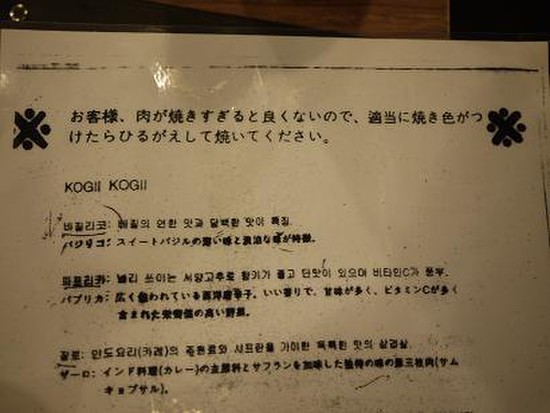 お客様、肉が焼きすぎると良くないので、適当に焼き色がつ
けたらひるがえして焼いてください。
KOGII KOGII
바질리코: 바질의 연한 맛과 담백한 맛이 특징.
バジリコ: スイートバジルの薄い味と淡泊な味が特徴。
파프리카: 널리 쓰이는 서양고추로 향기가 좋고 단맛이 있으며 비타민C가 풍부.
パプリカ: 広く使われている西洋唐辛子。いい香りで、甘味が多く、ビタミンCが多く
含まれた栄養価の高い野菜。
잘로: 인도요리(카레)의 주원료와 샤프란을 가미한 독특한 맛의 삼겹살.
ザーロ: インド料理(カレー)の主原料とサフランを加味した独特の味の豚三枚肉(サム
ギョプサル)。